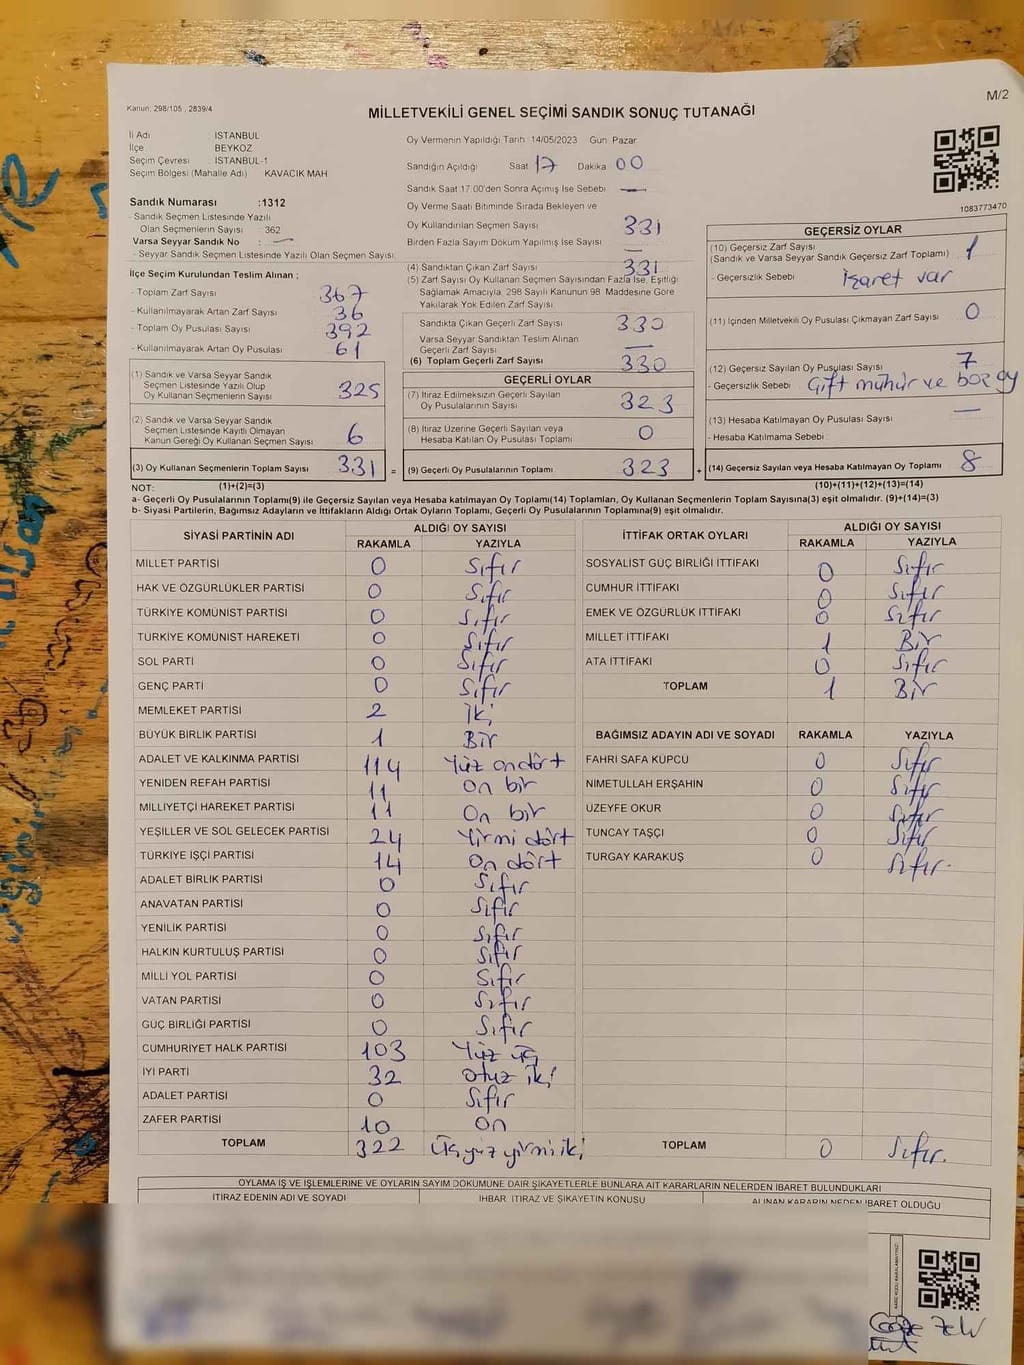 M/2
Kanun: 298/105 , 2839/4
MİLLETVEKİLİ GENEL SEÇİMİ SANDIK SONUÇ TUTANAĞI
İl Adı : İSTANBUL
İlçe BEYKOZ
Seçim Çevresi : İSTANBUL-1
Seçim Bölgesi (Mahalle Adı) KAVACIK MAH
Sandık Numarası :1312
- Sandık Seçmen Listesinde Yazılı
Olan Seçmenlerin Sayısı : 362
Varsa Seyyar Sandık No : —
- Seyyar Sandık Seçmen Listesinde Yazılı Olan Seçmen Sayısı:
İlçe Seçim Kurulundan Teslim Alınan ;
- Toplam Zarf Sayısı 367
- Kullanılmayarak Artan Zarf Sayısı 36
- Toplam Oy Pusulası Sayısı 392
- Kullanılmayarak Artan Oy Pusulası 61
(1) Sandık ve Varsa Seyyar Sandık
Seçmen Listesinde Yazılı Olup
Oy Kullanan Seçmenlerin Sayısı 325
(2) Sandık ve Varsa Seyyar Sandık
Seçmen Listesinde Kayıtlı Olmayan
Kanun Gereği Oy Kullanan Seçmen Sayısı 6
(3) Oy Kullanan Seçmenlerin Toplam Sayısı 331 =
Oy Vermenin Yapıldığı Tarih : 14/05/2023 Gün: Pazar
Sandığın Açıldığı Saat 17 Dakika 00
Sandık Saat 17.00'den Sonra Açımış İse Sebebi —
Oy Verme Saati Bitiminde Sırada Bekleyen ve
Oy Kullandırılan Seçmen Sayısı 331
Birden Fazla Sayım Döküm Yapılmış İse Sayısı —
(4) Sandıktan Çıkan Zarf Sayısı 331
(5) Zarf Sayısı Oy Kullanan Seçmen Sayısından Fazla İse, Eşitliği
Sağlamak Amacıyla, 298 Sayılı Kanunun 98. Maddesine Göre
Yakılarak Yok Edilen Zarf Sayısı
Sandıkta Çıkan Geçerli Zarf Sayısı 330
Varsa Seyyar Sandıktan Teslim Alınan
Geçerli Zarf Sayısı —
(6) Toplam Geçerli Zarf Sayısı 330
GEÇERLİ OYLAR
(7) İtiraz Edilmeksizin Geçerli Sayılan
Oy Pusulalarının Sayısı 323
(8) İtiraz Üzerine Geçerli Sayılan veya
Hesaba Katılan Oy Pusulası Toplamı 0
(9) Geçerli Oy Pusulalarının Toplamı 323 +
1083773470
GEÇERSİZ OYLAR
(10) Geçersiz Zarf Sayısı 1
(Sandık ve Varsa Seyyar Sandık Geçersiz Zarf Toplamı)
- Geçersizlik Sebebi : işaret var
(11) İçinden Milletvekili Oy Pusulası Çıkmayan Zarf Sayısı 0
(12) Geçersiz Sayılan Oy Pusulası Sayısı 7
- Geçersizlik Sebebi : Çift mühür ve boş oy
(13) Hesaba Katılmayan Oy Pusulası Sayısı —
- Hesaba Katılmama Sebebi :
(14) Geçersiz Sayılan veya Hesaba Katılmayan Oy Toplamı 8
NOT: (1)+(2)=(3) (10)+(11)+(12)+(13)=(14)
a- Geçerli Oy Pusulalarının Toplamı(9) ile Geçersiz Sayılan veya Hesaba katılmayan Oy Toplamı(14) Toplamları, Oy Kullanan Seçmenlerin Toplam Sayısına(3) eşit olmalıdır. (9)+(14)=(3)
b- Siyasi Partilerin, Bağımsız Adayların ve İttifakların Aldığı Ortak Oyların Toplamı, Geçerli Oy Pusulalarının Toplamına(9) eşit olmalıdır.
SİYASİ PARTİNİN ADI ALDIĞI OY SAYISI
RAKAMLA YAZIYLA
MİLLET PARTİSİ 0 Sıfır
HAK VE ÖZGÜRLÜKLER PARTİSİ 0 Sıfır
TÜRKİYE KOMÜNİST PARTİSİ 0 Sıfır
TÜRKİYE KOMÜNİST HAREKETİ 0 Sıfır
SOL PARTİ 0 Sıfır
GENÇ PARTİ 0 Sıfır
MEMLEKET PARTİSİ 2 İki
BÜYÜK BİRLİK PARTİSİ 1 Bir
ADALET VE KALKINMA PARTİSİ 114 Yüz ondört
YENİDEN REFAH PARTİSİ 11 On bir
MİLLİYETÇİ HAREKET PARTİSİ 11 On bir
YEŞİLLER VE SOL GELECEK PARTİSİ 24 Yirmi dört
TÜRKİYE İŞÇİ PARTİSİ 14 On dört
ADALET BİRLİK PARTİSİ 0 Sıfır
ANAVATAN PARTİSİ 0 Sıfır
YENİLİK PARTİSİ 0 Sıfır
HALKIN KURTULUŞ PARTİSİ 0 Sıfır
MİLLİ YOL PARTİSİ 0 Sıfır
VATAN PARTİSİ 0 Sıfır
GÜÇ BİRLİĞİ PARTİSİ 0 Sıfır
CUMHURİYET HALK PARTİSİ 103 Yüz üç
İYİ PARTİ 32 otuz iki
ADALET PARTİSİ 0 Sıfır
ZAFER PARTİSİ 10 on
TOPLAM 322 Üçyüz yirmi iki
İTTİFAK ORTAK OYLARI ALDIĞI OY SAYISI
RAKAMLA YAZIYLA
SOSYALİST GÜÇ BİRLİĞİ İTTİFAKI 0 Sıfır
CUMHUR İTTİFAKI 0 Sıfır
EMEK VE ÖZGÜRLÜK İTTİFAKI 0 Sıfır
MİLLET İTTİFAKI 1 Bir
ATA İTTİFAKI 0 Sıfır
TOPLAM 1 Bir
BAĞIMSIZ ADAYIN ADI VE SOYADI RAKAMLA YAZIYLA
FAHRİ SAFA KÜPCÜ 0 Sıfır
NİMETULLAH ERŞAHİN 0 Sıfır
ÜZEYFE OKUR 0 Sıfır
TUNCAY TAŞÇI 0 Sıfır
TURGAY KARAKUŞ 0 Sıfır.
TOPLAM 0 Sıfır.
OYLAMA İŞ VE İŞLEMLERİNE VE OYLARIN SAYIM DÖKÜMÜNE DAİR ŞİKAYETLERLE BUNLARA AİT KARARLARIN NELERDEN İBARET BULUNDUKLARI
İTİRAZ EDENİN ADI VE SOYADI İHBAR, İTİRAZ VE ŞİKAYETİN KONUSU ALINAN KARARIN NEDEN İBARET OLDUĞU